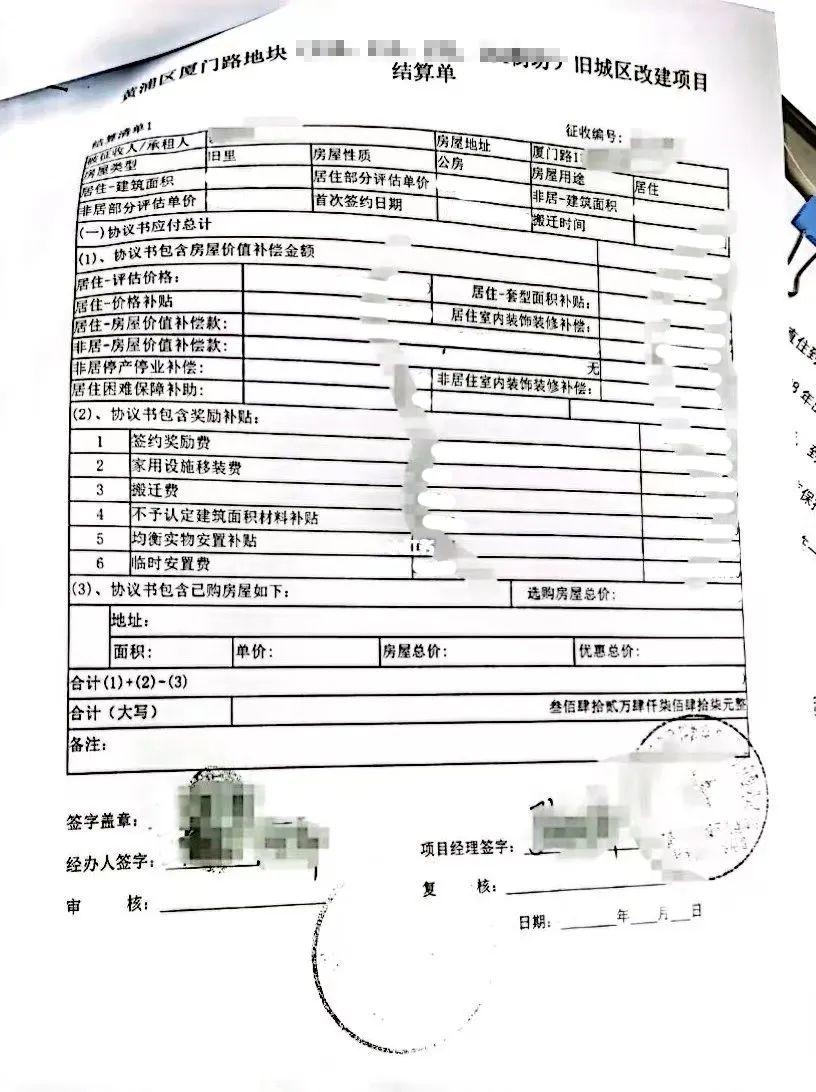 黄浦区厦门路地块
旧城区改建项目
结算单
结算清单1
征收编号:
被征收人/承租人 房屋地址 厦门路1
房屋类型 旧里 房屋性质 公房 房屋用途 居住
居住-建筑面积 居住部分评估单价 非居-建筑面积
非居部分评估单价 首次签约日期 搬迁时间
(一)协议书应付总计
(1)、协议书包含房屋价值补偿金额
居住-评估价格: 居住-套型面积补贴:
居住-价格补贴 居住室内装饰装修补偿:
居住-房屋价值补偿款:
非居-房屋价值补偿款: 无
非居停产停业补偿: 非居住室内装饰装修补偿:
居住困难保障补助:
(2)、协议书包含奖励补贴:
1 签约奖励费
2 家用设施移装费
3 搬迁费
4 不予认定建筑面积材料补贴
5 均衡实物安置补贴
6 临时安置费
(3)、协议书包含已购房屋如下: 选购房屋总价:
地址:
面积: 单价: 房屋总价: 优惠总价:
合计(1)+(2)-(3)
合计(大写) 叁佰肆拾贰万肆仟柒佰肆拾柒元整
备注:
签字盖章:
经办人签字: 项目经理签字:
审 核: 复 核:
日期: 年 月 日